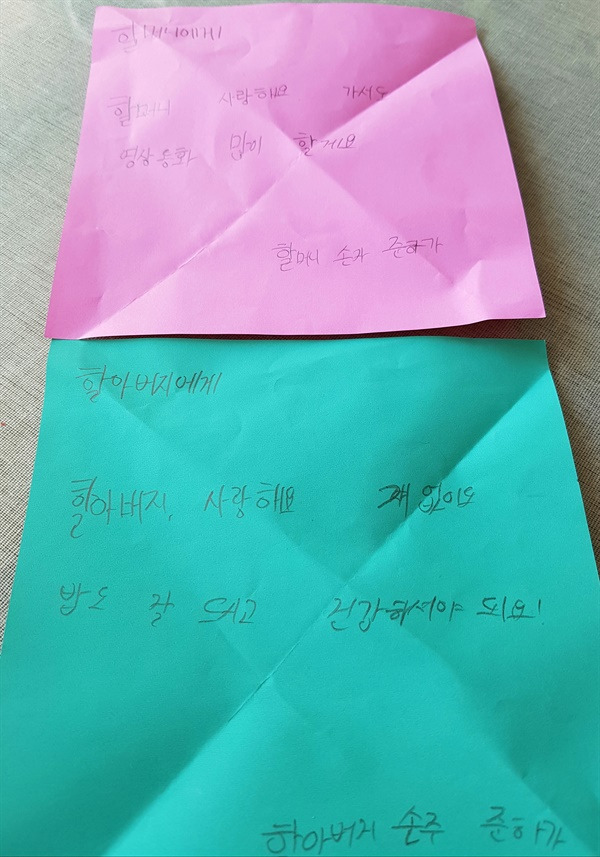 할머니에게
할머니 사랑해요 가서도
영상통화 많이 할게요
할머니 손자 준하가
할아버지에게
할아버지, 사랑해요 걔 없이도
밥도 잘 드시고 건강하셔야 되요!
할아버지 손주 준하가